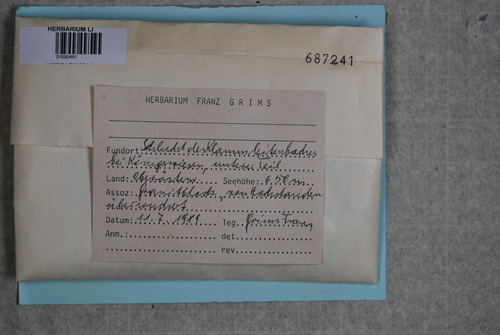 HERBARIUM LI
687241
HERBARIUM FRANZ GRIMS
Fundort: Schlucht des Klammleitenbaches
bei Königswiesen, unterer Teil
Land: Oberösterr. Seehöhe: 650 m
Assoz: Granitblock, von Nadelstreu
Datum: 11.7.1989 leg. Grims Franz
Anm.: det.
rev.